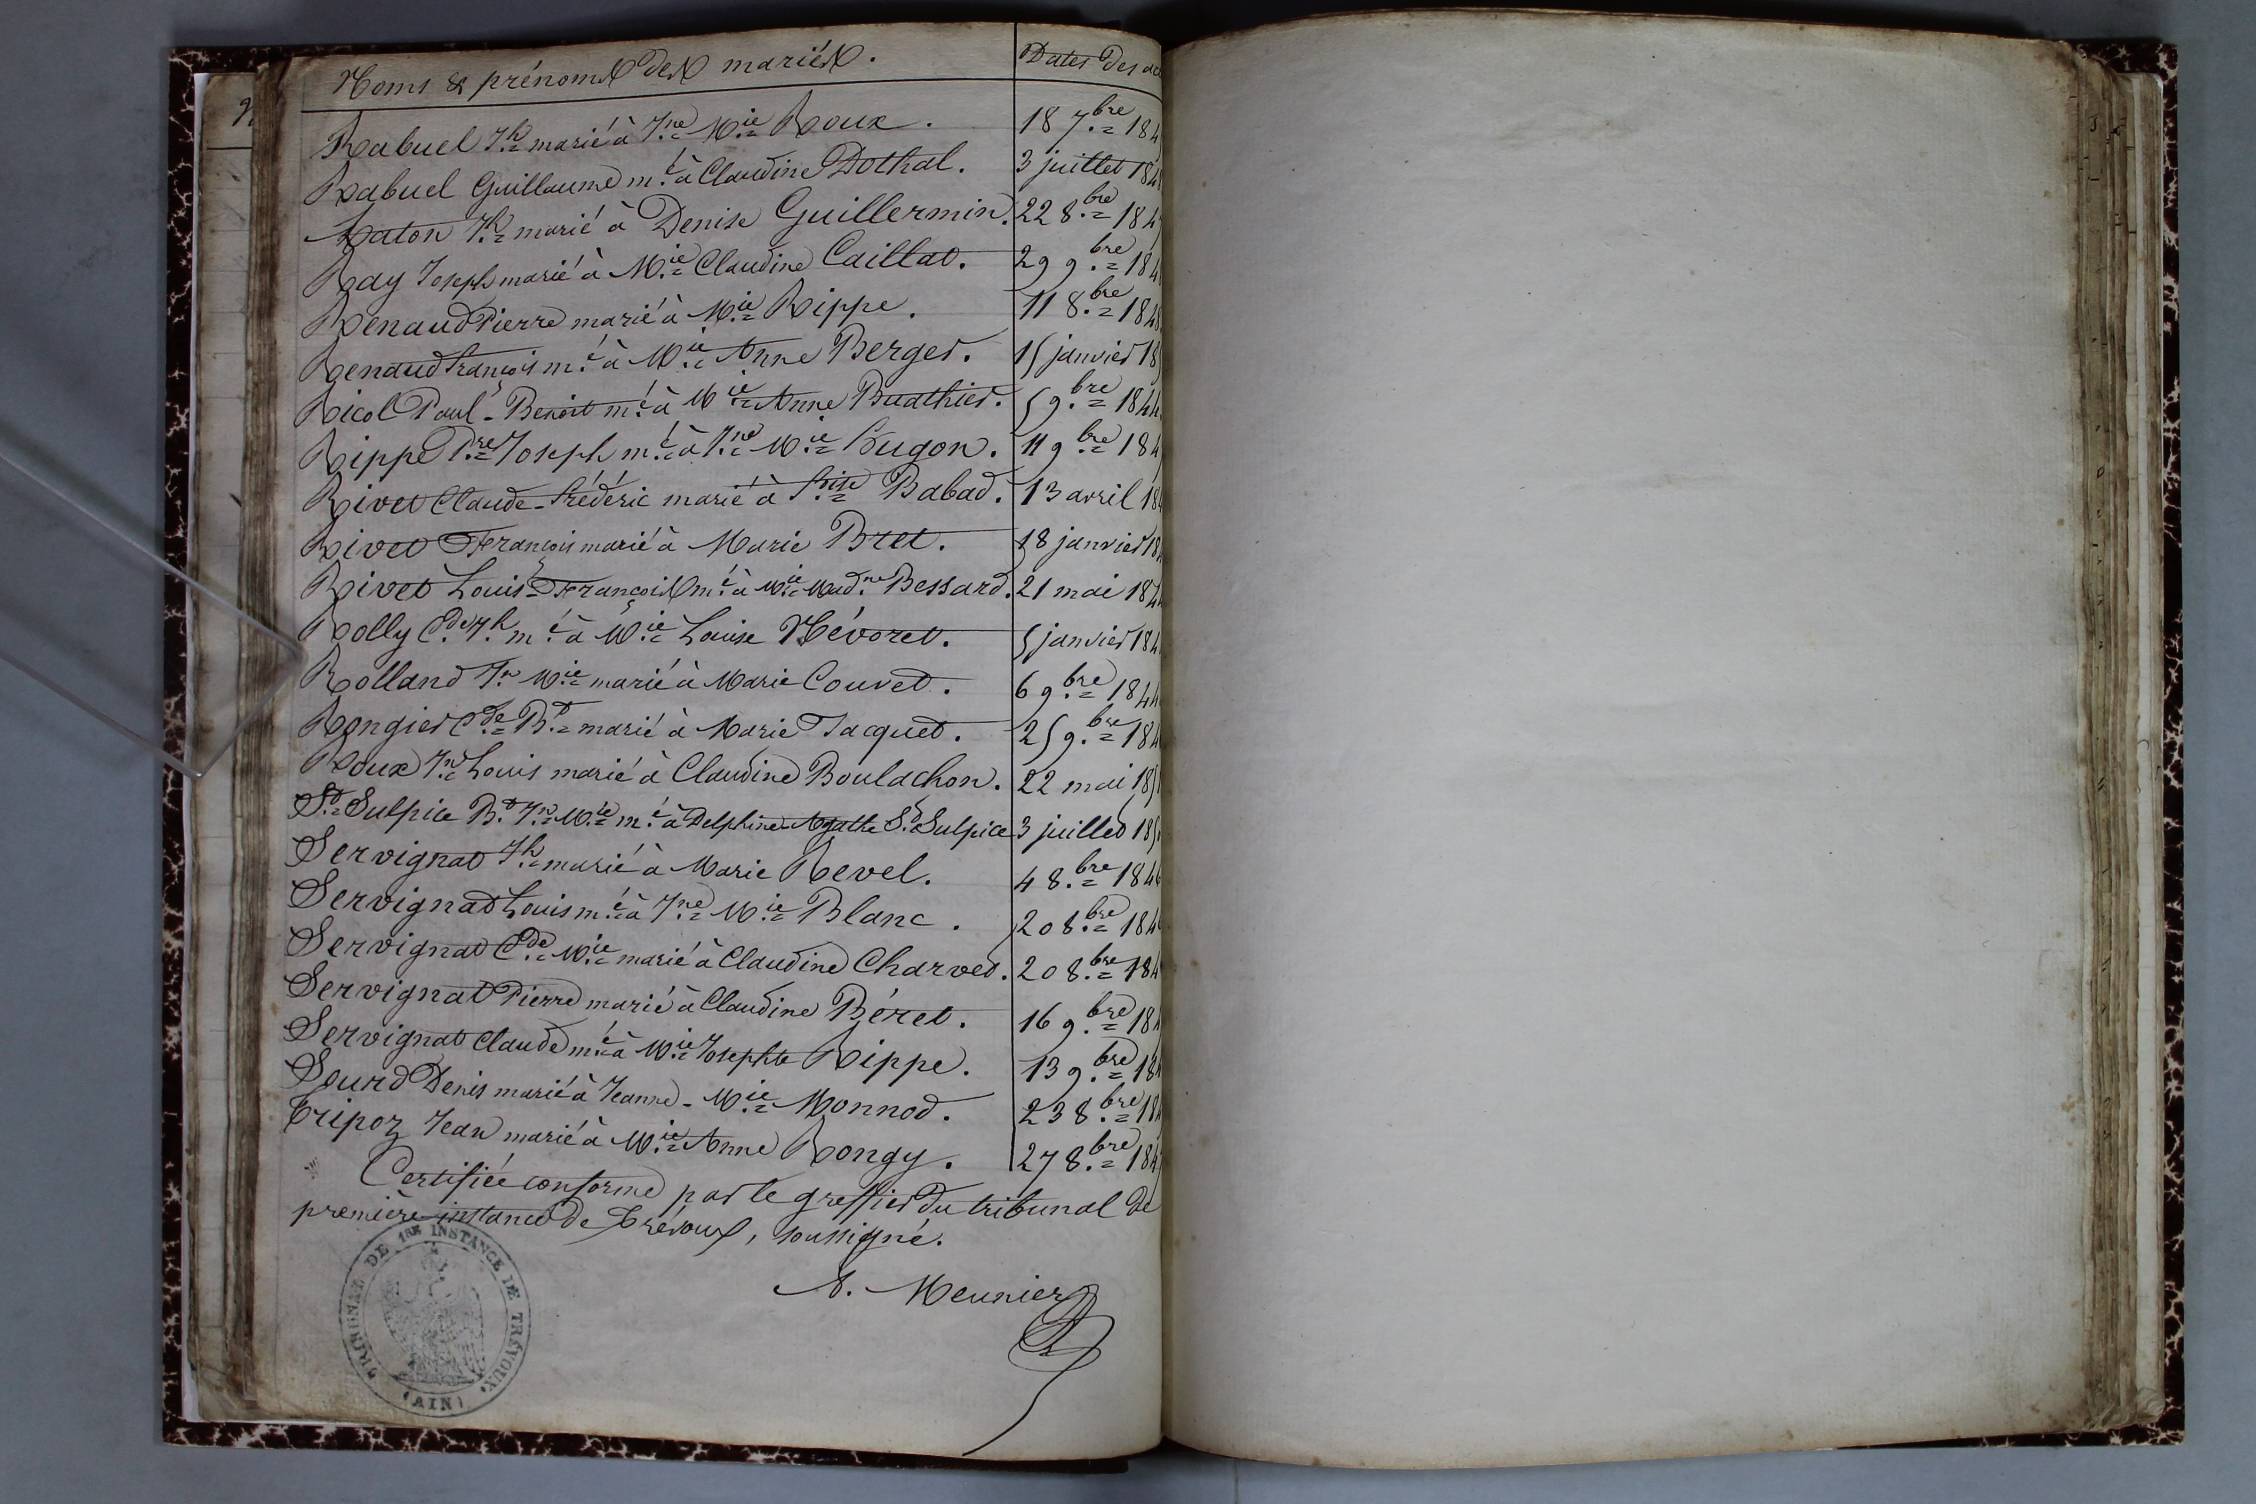 Noms & prénoms des mariés. Dates des
Rabuel Jh marié à Jne Mie Roux. 18 7bre 184
Rabuel Guillaume mé à Claudine Dothal. 3 juillet 184
Raton Jh marié à Denise Guillermin. 22 8bre 184
Ray Joseph marié à Mie Claudine Caillat. 29 9bre 184
Renaud Pierre marié à Mie Rippe. 11 8bre 184
Renaud François mé à Mie Anne Berger. 15 janvier 18
Ricol Paul-Benoit mé à Mie Anne Buathier. 5 9bre 184
Rippe Pre Joseph mé à Jne Mie Hugon. 11 9bre 184
Rivet Claude-Frédéric marié à Babad. 13 avril 18
Rivet François marié à Marie Bret. 18 janvier 18
Rivet Louis-François mé à Mie Madne Bessard. 21 mai 18
Rolly Cde Jh mé à Mie Louise Névoret. 5 janvier 184
Rolland Jn Mie marié à Marie Couvet. 6 9bre 184
Rongier Cde Bt marié à Marie Jacquet. 25 9bre 18
Roux Jn Louis marié à Claudine Boulachon. 22 mai 185
St Sulpice Bt Jn Mie mé à Delphine-Agathe St Sulpice 3 juillet 185
Servignat Jh marié à Marie Revel. 4 8bre 184
Servignat Louis mé à Jne Mie Blanc. 20 8bre 184
Servignat Cde Mie marié à Claudine Charvet. 20 8bre 184
Servignat Pierre marié à Claudine Béret. 16 9bre 18
Servignat Claude mé à Mie Josephte Rippe. 13 9bre 18
Sourd Denis marié à Jeanne-Mie Monnod. 23 8bre 18
Tripoz Jean marié à Mie Anne Rongy. 27 8bre 184
Certifiée conforme par le greffier du tribunal de
première instance de Trévoux, soussigné.
A. Meunier
TRIBUNAL DE 1RE INSTANCE DE TRÉVOUX
(AIN)